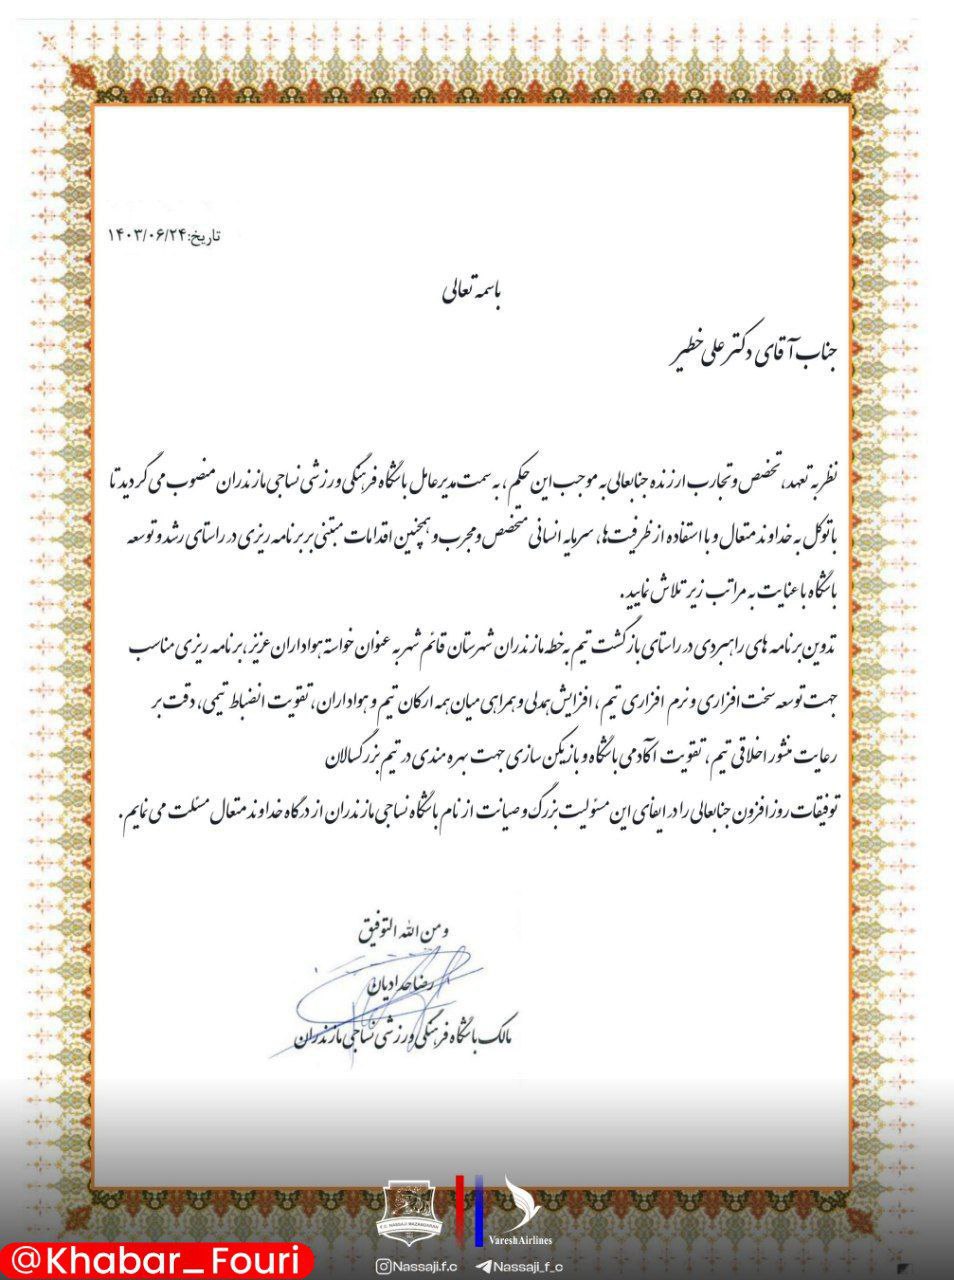 تاریخ:۱۴۰۳/۰۶/۲۴
باسمه تعالی
جناب آقای دکتر علی خطیر
نظر به تعهد، تخصص و تجارب ارزنده جنابعالی به موجب این حکم، به سمت مدیرعامل باشگاه فرهنگی ورزشی نساجی مازندران منصوب می گردید تا
با توکل به خداوند متعال و با استفاده از ظرفیت ها، سرمایه انسانی متخصص و مجرب و همچنین اقدامات مبتنی بر برنامه ریزی در راستای رشد و توسعه
باشگاه با عنایت به مراتب زیر تلاش نمایید.
تدوین برنامه های راهبردی در راستای بازگشت تیم به خطه مازندران شهرستان قائم شهر به عنوان خواسته هواداران عزیز، برنامه ریزی مناسب
جهت توسعه سخت افزاری و نرم افزاری تیم، افزایش همدلی و همراهی میان همه ارکان تیم و هواداران، تقویت انضباط تیمی، دقت بر
رعایت منشور اخلاقی تیم، تقویت آکادمی باشگاه و بازیکن سازی جهت بهره مندی در تیم بزرگسالان
توفیقات روز افزون جنابعالی را در ایفای این مسئولیت بزرگ و صیانت از نام باشگاه نساجی مازندران از درگاه خداوند متعال مسئلت می نمایم.
و من الله التوفیق
رضا حدادیان
مالک باشگاه فرهنگی ورزشی نساجی مازندران
F.C. NASSAJI MAZANDARAN
VareshAirlines
Nassaji.f.c
Nassaji_f_c
@Khabar_Fouri